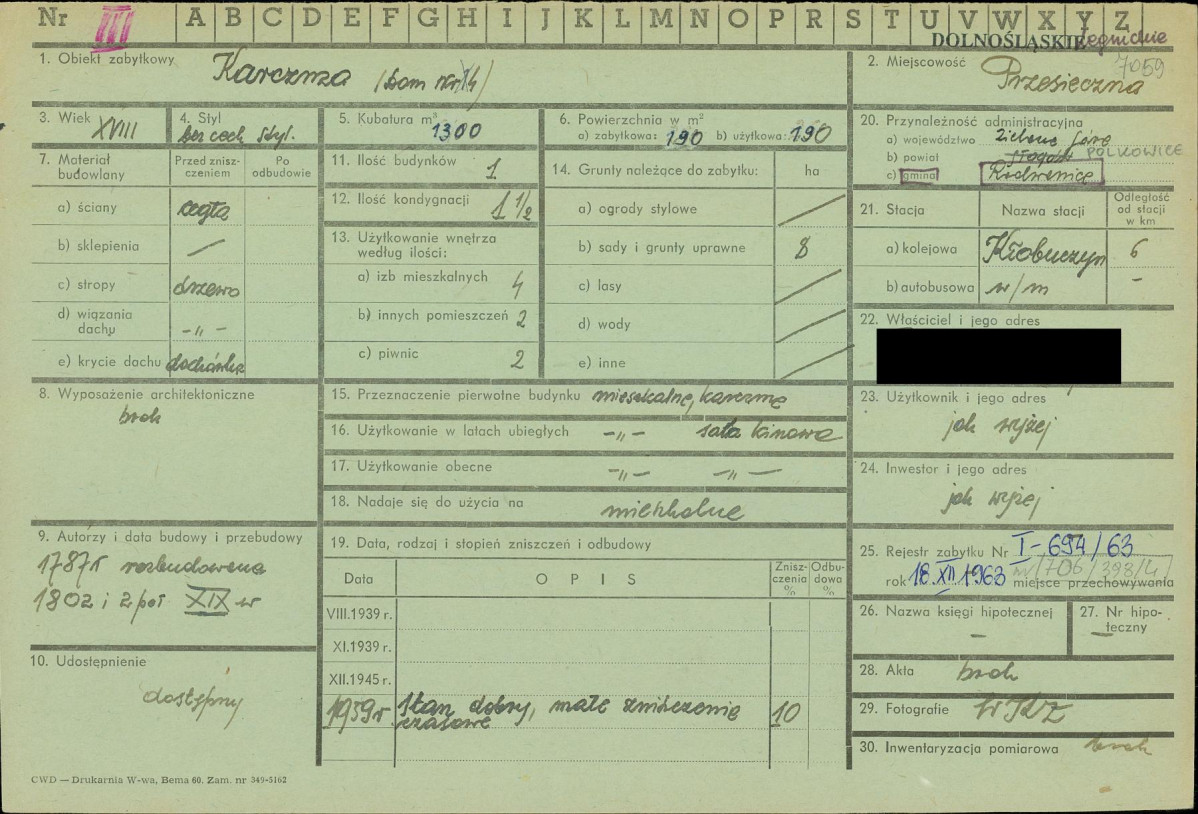 Nr III A B C D E F G H I J K L M N O P R S T U V W X Y Z
DOLNOŚLĄSKIE Legnickie
1. Obiekt zabytkowy Karczma (dom nr 14)
2. Miejscowość Przesieczna 7059
3. Wiek XVIII
4. Styl bez cech styl.
5. Kubatura m³ 1300
6. Powierzchnia w m²
a) zabytkowa: 190 b) użytkowa: 190
20. Przynależność administracyjna
a) województwo Zielona Góra
b) powiat Głogów POLKOWICE
c) gmina Radwanice
7. Materiał budowlany
Przed zniszczeniem
Po odbudowie
a) ściany cegła
b) sklepienia —
c) stropy drzewo
d) wiązania dachu -„-
e) krycie dachu dachówka
11. Ilość budynków 1
12. Ilość kondygnacji 1 1/2
13. Użytkowanie wnętrza
według ilości:
a) izb mieszkalnych 4
b) innych pomieszczeń 2
c) piwnic 2
14. Grunty należące do zabytku: ha
a) ogrody stylowe
b) sady i grunty uprawne 8
c) lasy
d) wody
e) inne
21. Stacja Nazwa stacji Odległość od stacji w km
a) kolejowa Kłobuczyn 6
b) autobusowa w/m -
22. Właściciel i jego adres
8. Wyposażenie architektoniczne
brak
15. Przeznaczenie pierwotne budynku mieszkalne, karczma
16. Użytkowanie w latach ubiegłych -„- sala kinowa
17. Użytkowanie obecne -„- -„-
18. Nadaje się do użycia na mieszkalne
23. Użytkownik i jego adres
jak wyżej
24. Inwestor i jego adres
jak wyżej
9. Autorzy i data budowy i przebudowy
1787 r rozbudowana
1802 i 2 poł XIX w
19. Data, rodzaj i stopień zniszczeń i odbudowy
Data O P I S Zniszczenia % Odbudowa %
VIII.1939 r.
XI.1939 r.
XII.1945 r.
1959 r Stan dobry, małe zniszczenie 10
czasowe
25. Rejestr zabytku Nr I-694/63
rok 18.XII 1963 miejsce przechowywania
26. Nazwa księgi hipotecznej -
27. Nr hipoteczny —
10. Udostępnienie
dostępny
28. Akta brak
29. Fotografie WKZ
30. Inwentaryzacja pomiarowa brak
CWD — Drukarnia W-wa, Bema 60. Zam. nr 349-5162